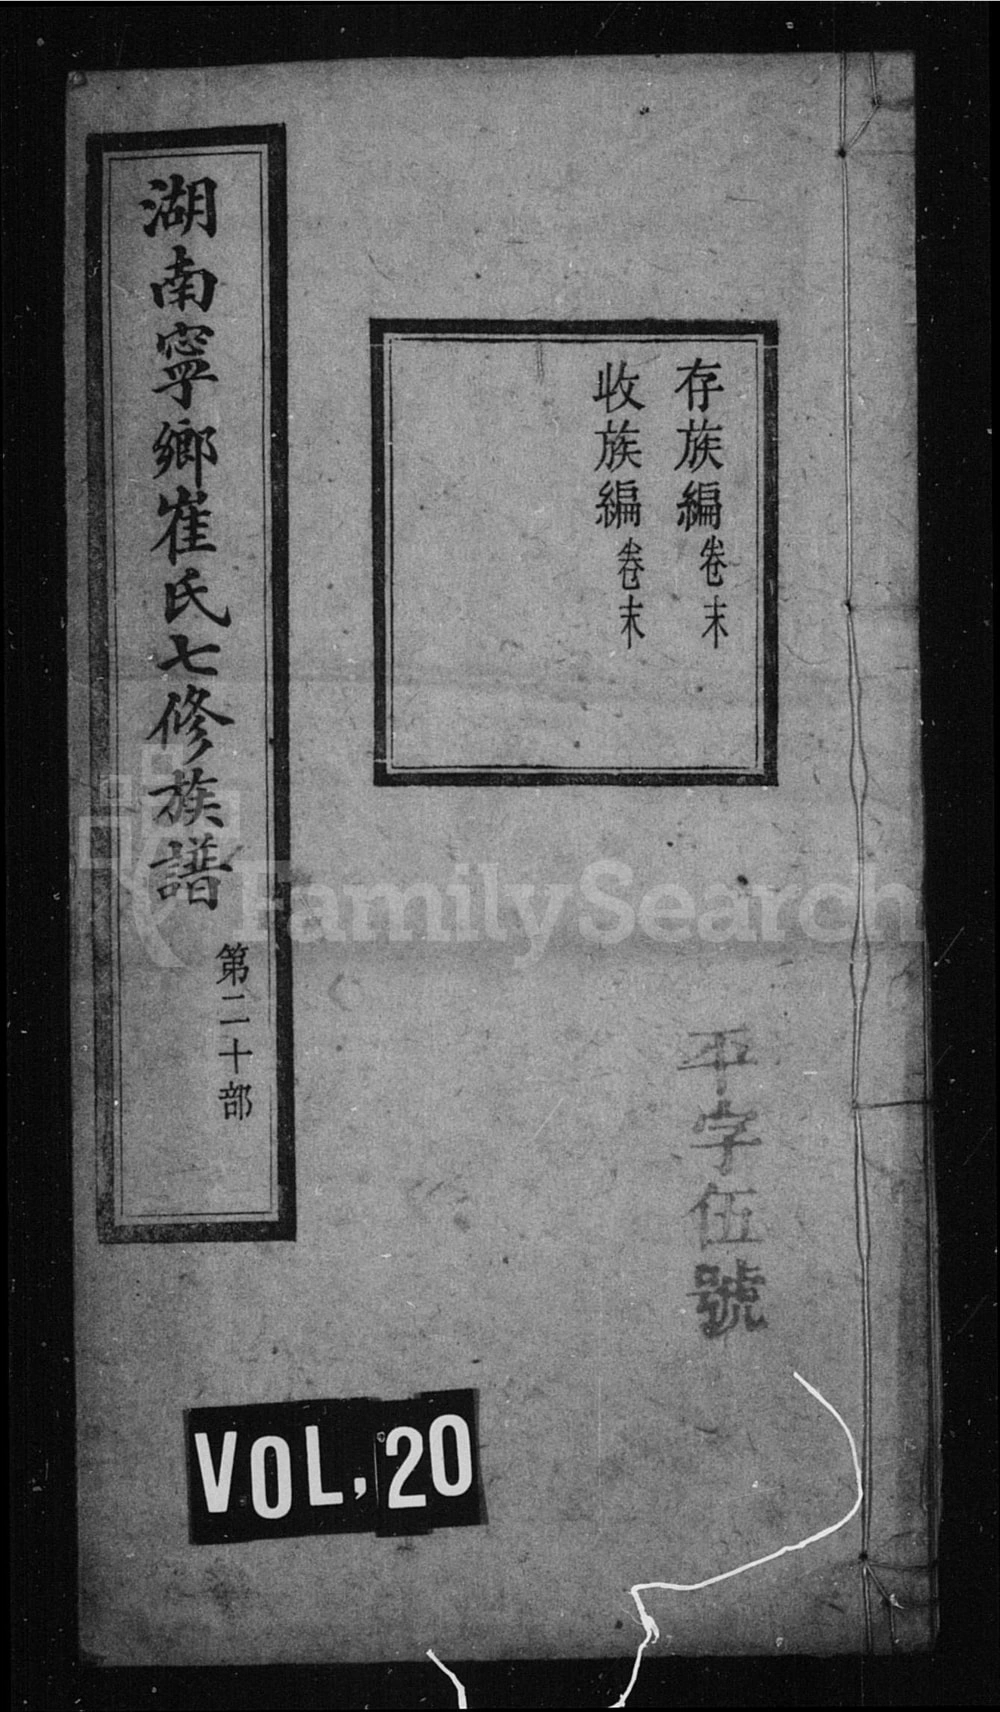 存族編卷末
收族編卷末
湖南寧鄉崔氏七修族譜
第二十部
平字伍號
VOL,20
FamilySearch